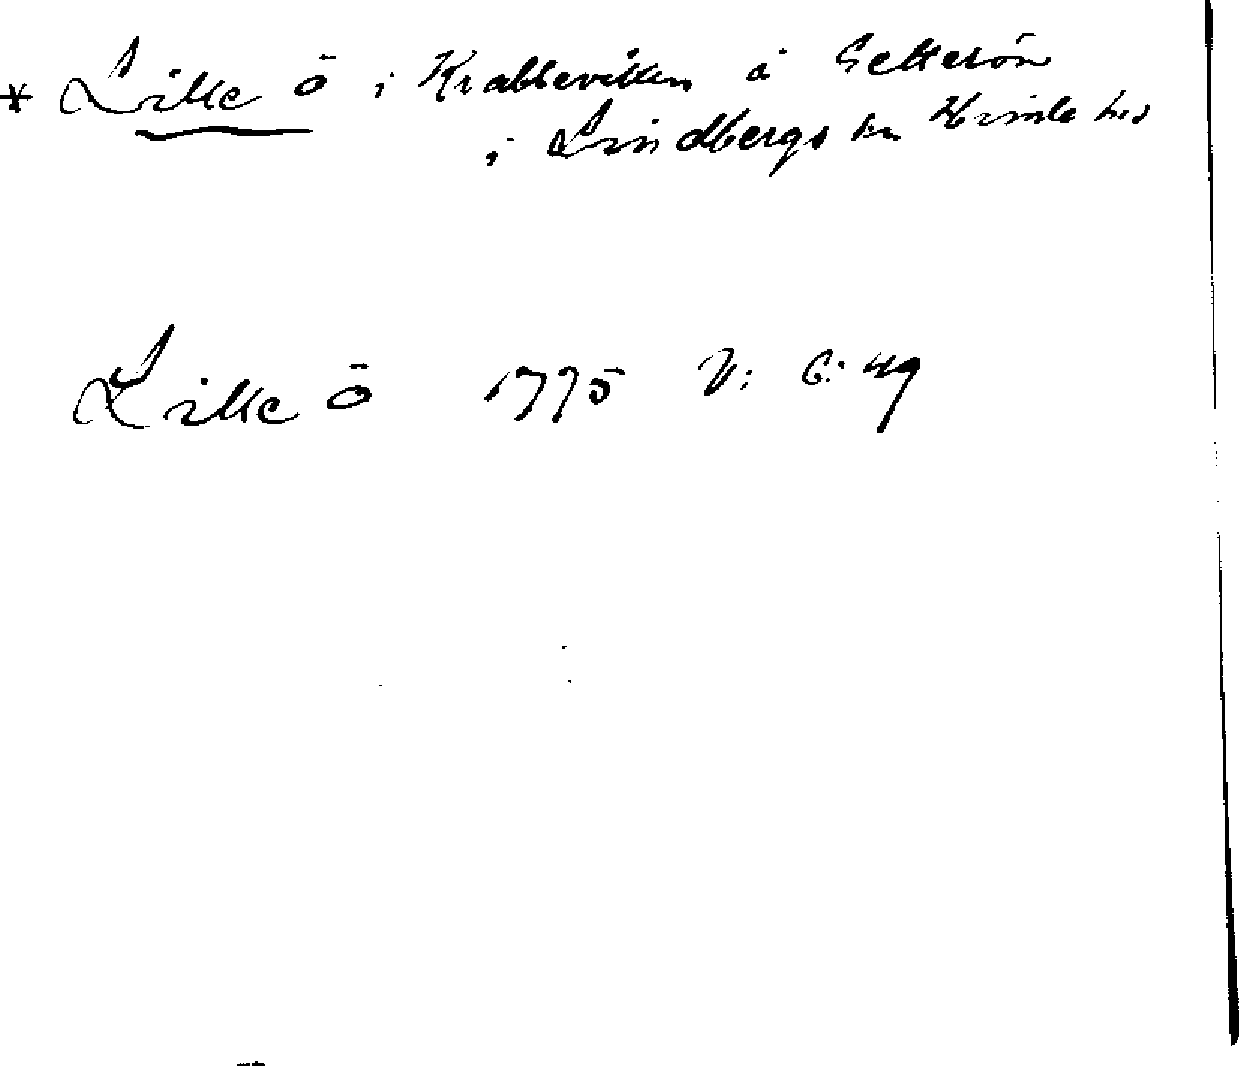 * Lille ö i Krabbeviken å Getterön
i Lindbergs sn Himle hd
Lille ö 1775 V: 6: 49